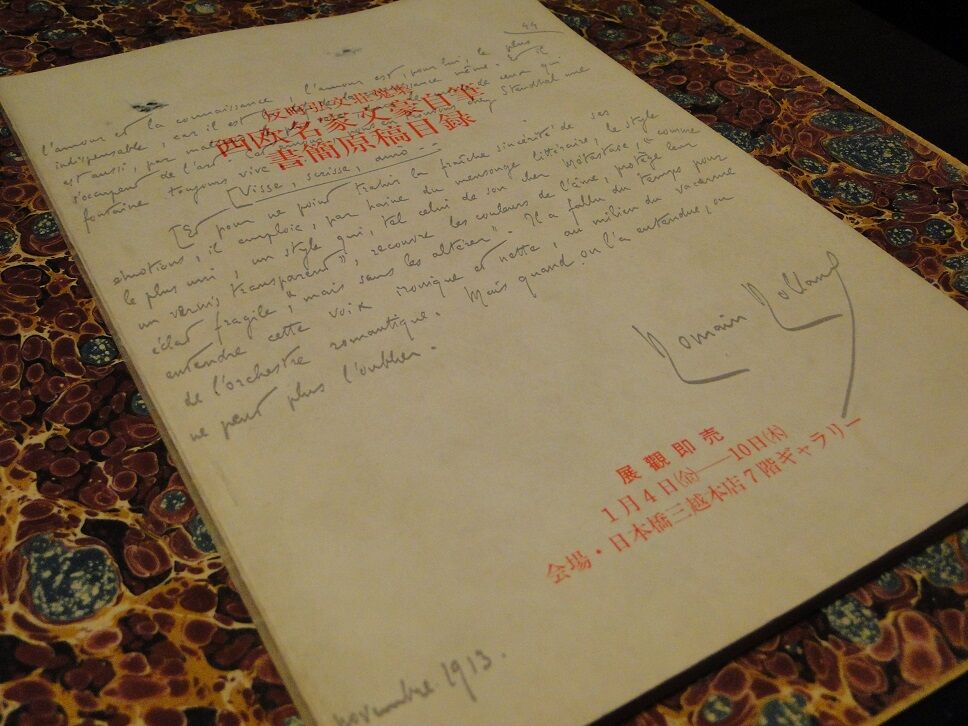 44
l'amour et la connaissance, l'amour est, pour lui, le plus
indispensable, car il est de la connaissance même. Et il
est aussi, par de ceux qui
s'occupent de l'art chez Stendhal une
fontaine toujours vive
反町弘文荘
西欧名家文豪自筆
書簡原稿目録
[Visse, scrisse, amò --
[Et pour ne point trahir la fraîche sincérité de ses
émotions, il emploie, par haine du mensonge littéraire, le style
le plus uni, un style qui, tel celui de son cher Métastase, "comme
un vernis transparent", recouvre les couleurs de l'âme, protège leur
éclat fragile, "mais sans les altérer". Il a fallu du temps pour
entendre cette voix ironique et nette, au milieu du vacarme
de l'orchestre romantique. Mais quand on l'a entendue, on
ne peut plus l'oublier.
Romain Rolland
展觀即売
1月4日㈮―10日㈭
会場・日本橋三越本店7階ギャラリー
novembre 1913.